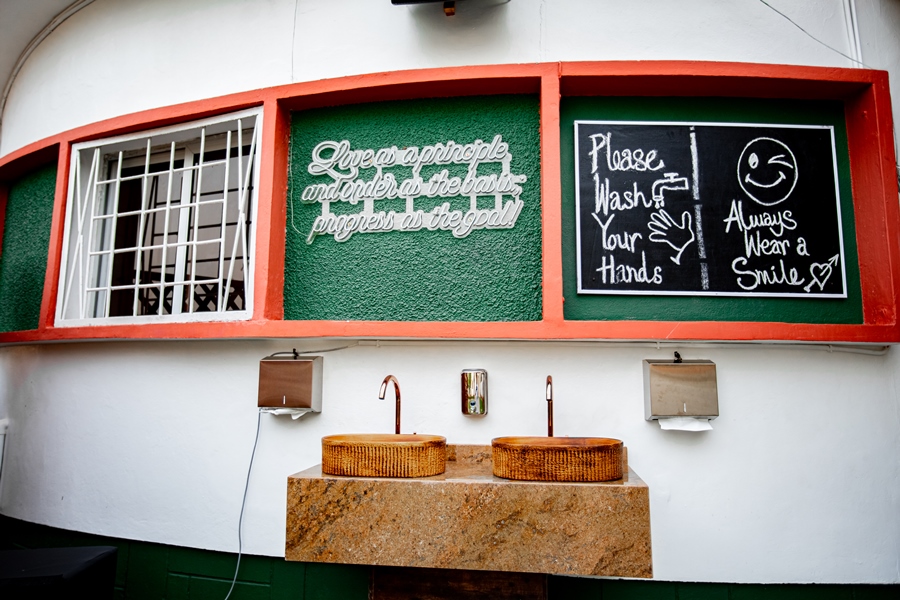 Love as a principle
and order as the basis;
progress as the goal!
Please
Wash
Your
Hands
Always
Wear a
Smile